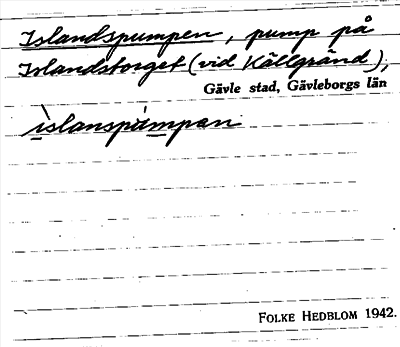 Islandspumpen, pump på
Islandstorget (vid Källgränd),
Gävle stad, Gävleborgs län
ìslanspúmpan
FOLKE HEDBLOM 1942.